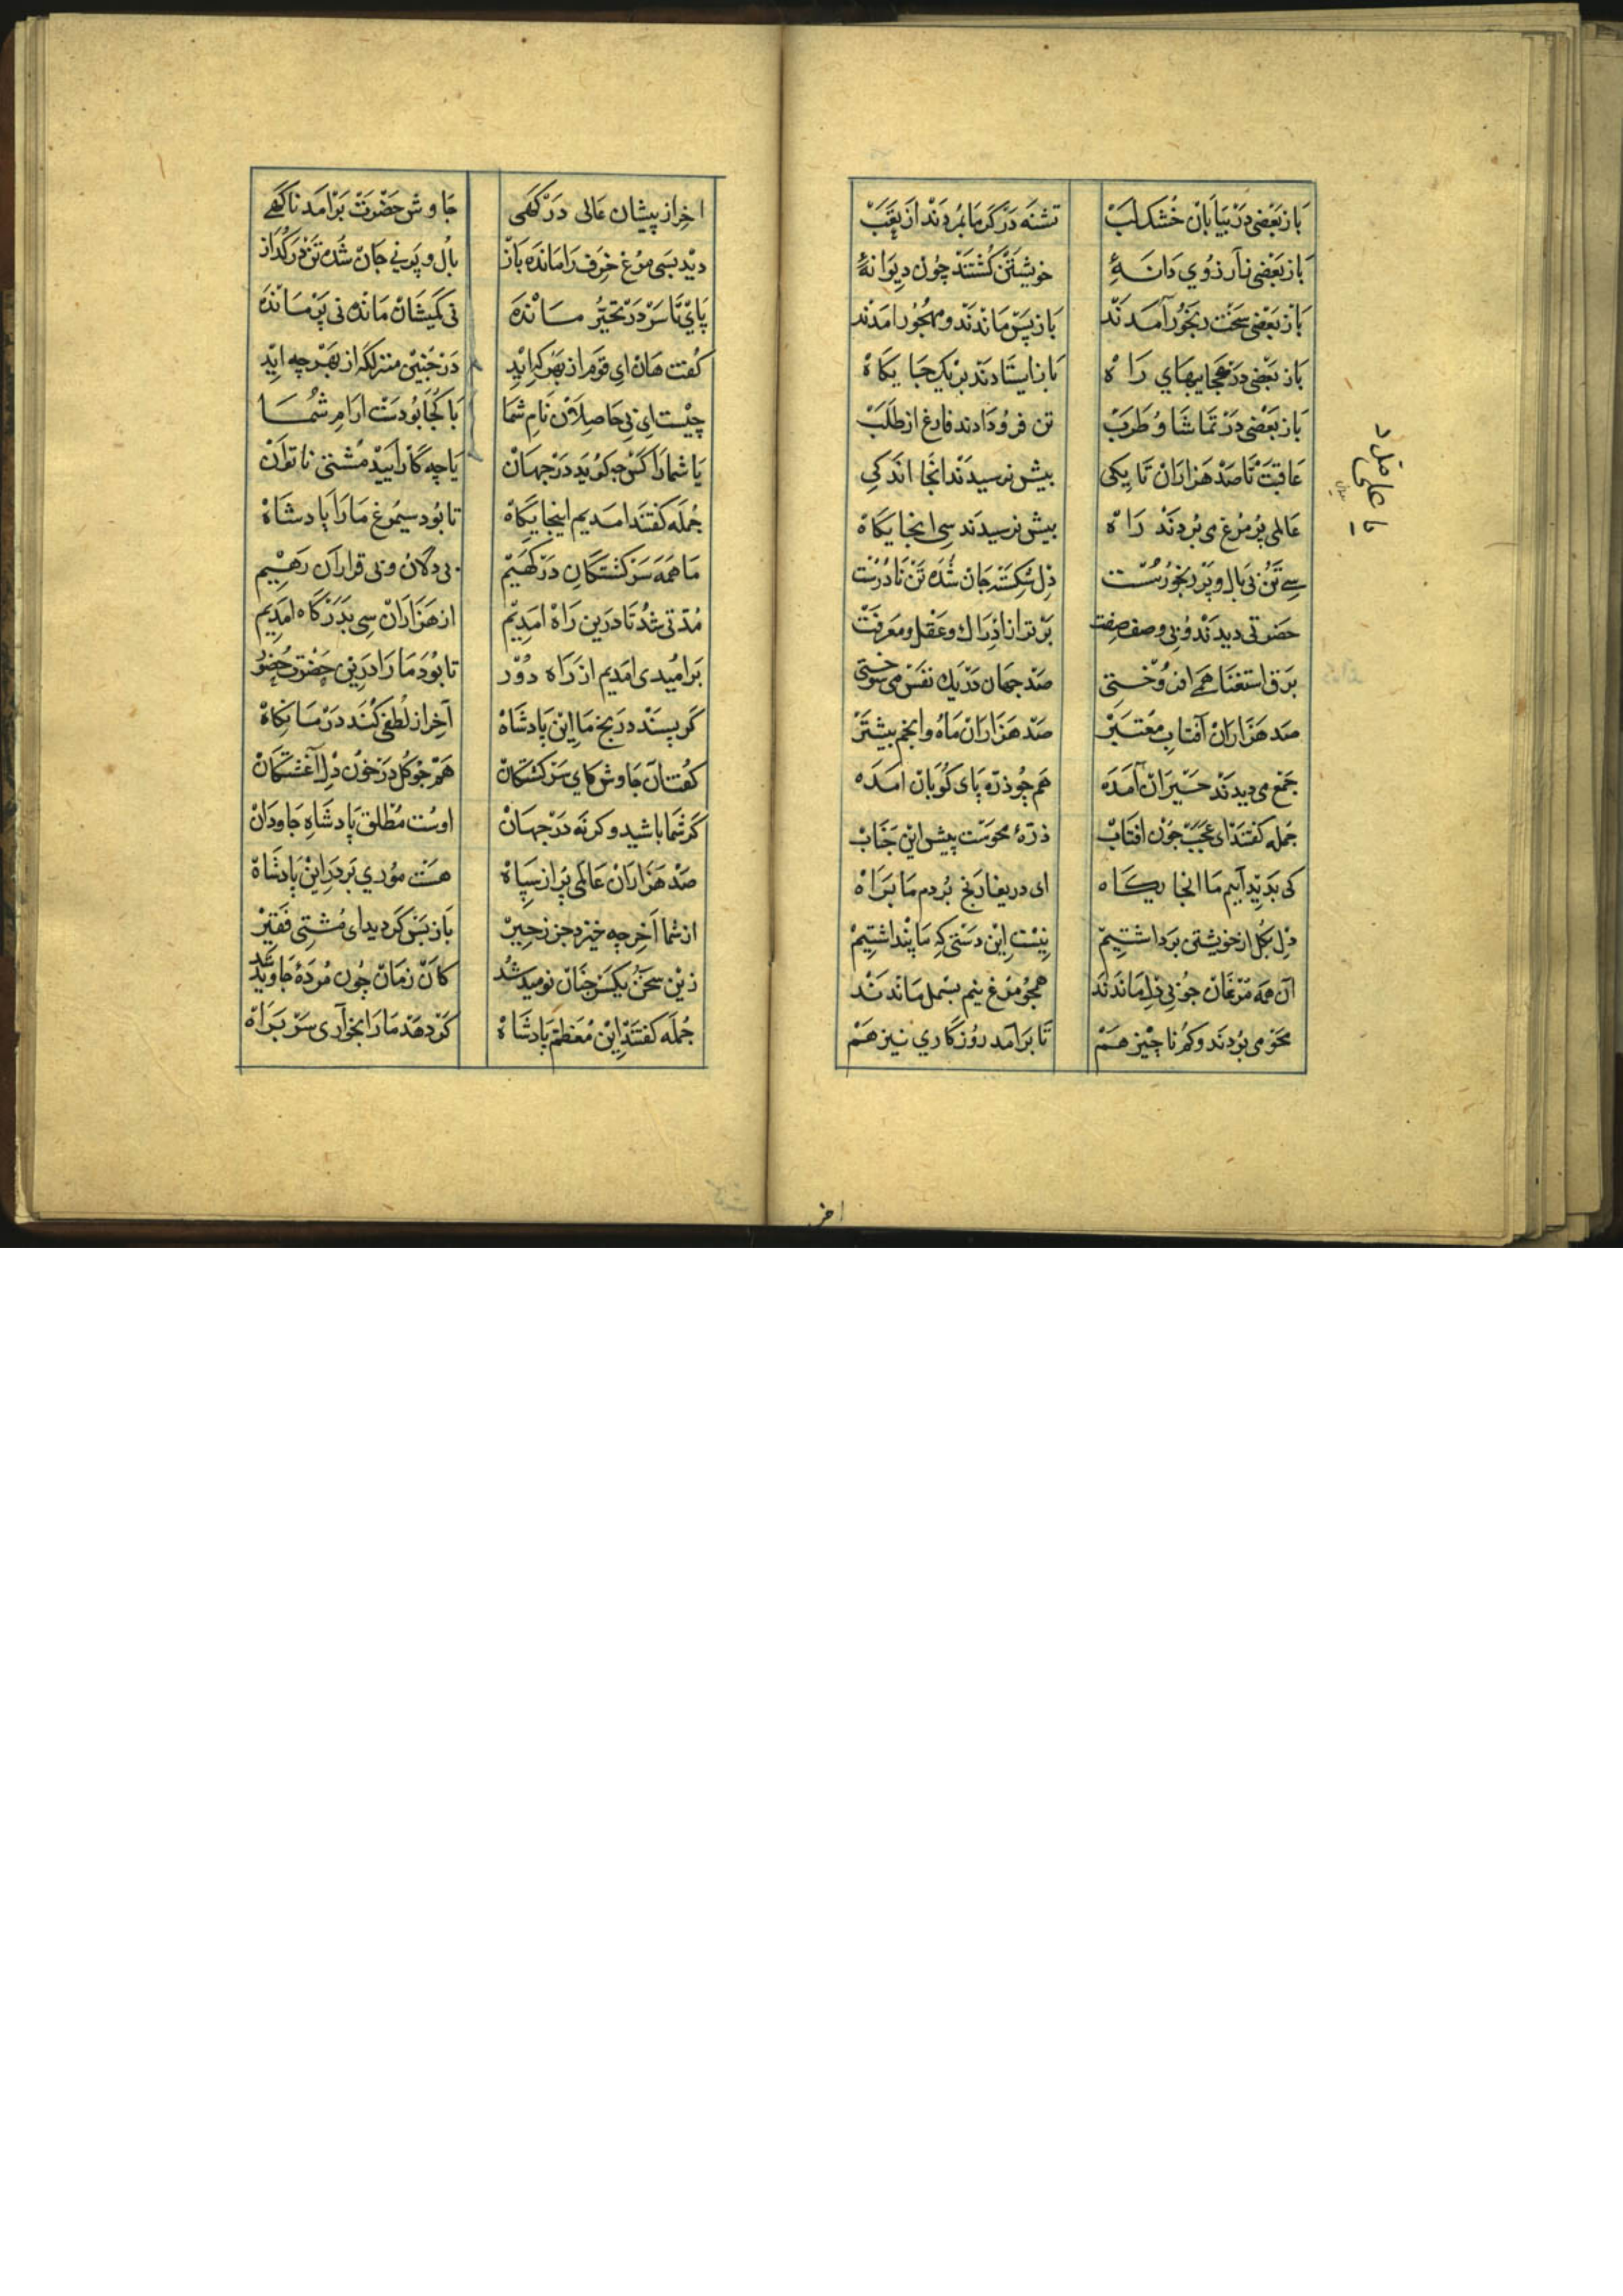 باز بعضی در بیابان خشک لب تشنه در گرما بمردند از تعب
باز بعضی ز آرزوی دانهٔ خویشتن کشتند چون دیوانهٔ
باز بعضی سخت رنجور آمدند باز پس ماندند و مهجور امدند
باز بعضی در عجایبهای راه باز ایستادند بر یک جایکاه
باز بعضی در تماشا و طرب تن فرو دادند فارغ از طلب
عاقبت تا صد هزاران تا یکی بیش نرسیدند انجا اندکی
عالمی پر مرغ می بردند راه بیش نرسیدند سی انجایکاه
سی تن بی بال و پر رنجور سست دل شکسته جان شده تن نادرست
حضرتی دیدند و بی وصف صفت برتر از ادراک و عقل و معرفت
برق استغنا همی افروختی صد جهان در یک نفس می سوختی
صد هزاران آفتاب معتبر صد هزاران ماه و انجم بیشتر
جمع می دیدند حیران آمده هم چو ذره پای کوبان امده
جمله کفتند ای عجب چون افتاب ذرهٔ محوست پیش این جناب
کی بدید آییم ما انجایکاه ای دریغا رنج بردم ما براه
دل بکل از خویشتن برداشتیم نیست این دستی که ما پنداشتیم
آن همه مرغان چو بی دل ماندند همچو مرغ نیم بسمل ماندند
محو می بودند و کم ناچیز هم تا برآمد روزکاری نیز هم
یا علی مدد
اخر
اخر از پیشان عالی درکهی جاوش حضرت برامد ناکهی
دید بسی مرغ خرف را مانده باز بال و پر نی جان شده تن در کداز
پای تا سر در تحیر مانده نی کمیشان مانده نی پر مانده
کفت هان ای قوم از بهر که اید در چنین منزلکه از بهر چه اید
چیست ای بی حاصلان نام شما با کجا بودت ارام شما
یا شما را کس چه کوید در جهان یا چه کار ایید مشتی ناتوان
جمله کفتند امدیم اینجایکاه تا بود سیمرغ ما را پادشاه
ما همه سرکشتکان درکهیم بی دلان و بی قراران رهییم
مدتی شد تا درین راه امدیم از هزاران سی بدرکاه امدیم
بر امیدی امدیم از راه دور تا بود ما را درین حضرت حضور
کر پسند در بخ ما این پادشاه آخر از لطفی کند در ما نکاه
کفت آن جاوش کای سرکشتکان هم چو کل در خون دل آغشتکان
کر شما باشید و کر نه در جهان اوست مطلق پادشاه جاودان
صد هزاران عالمی پر از سپاه هست موری بر در این پادشاه
از شما آخر چه خیزد جز زحیر باز پس کردید ای مشتی فقیر
زین سخن یکسر چنان نومید شد کان زمان چون مردهٔ جاوید شد
جمله کفتند این معظم پادشاه کر دهد ما را بخواری سر براه